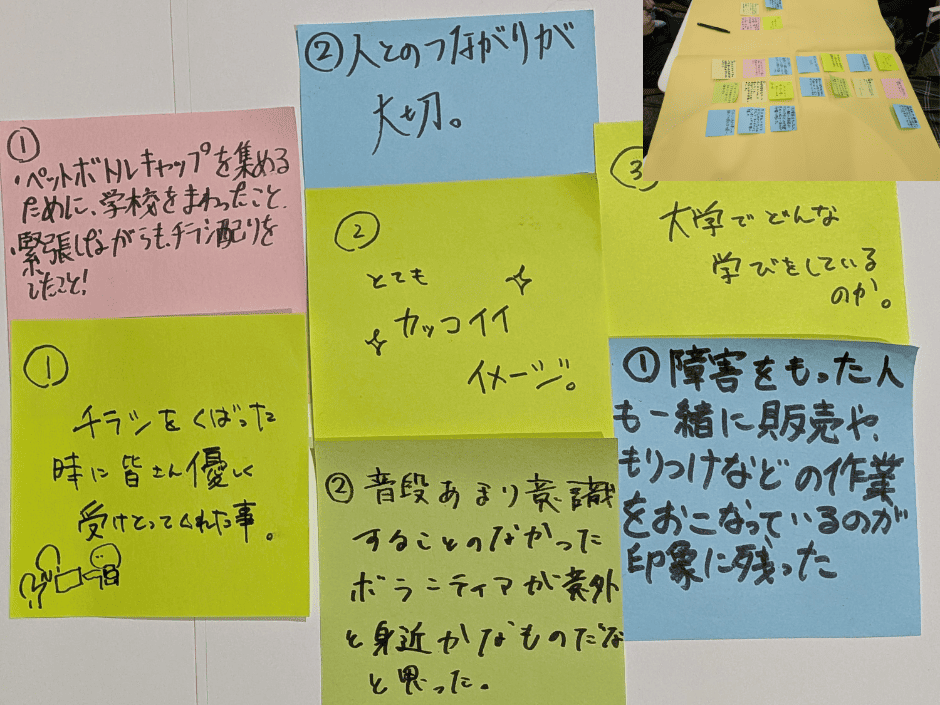 ①
・ペットボトルキャップを集める
ために、学校をまわったこと、
・緊張しながらも、チラシ配りを
したこと!
①
チラシをくばった
時に皆さん優しく
受けとってくれた事。
②人とのつながりが
大切。
②
とても
カッコイイ
イメージ。
②普段あまり意識
することのなかった
ボランティアが意外
と身近かなものだな
と思った。
③
大学でどんな
学びをしている
のか。
①障害をもった人
も一緒に販売や、
もりつけなどの作業
をおこなっているのが
印象に残った